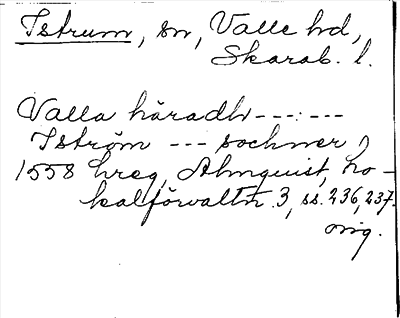 Istrum, sn, Valle hd,
Skarab. l.
Valla häradh ---:---
Iström --- sochner
1558 hreg, Almquist, Lo-
kalförvaltn. 3, ss. 236, 237.
orig.